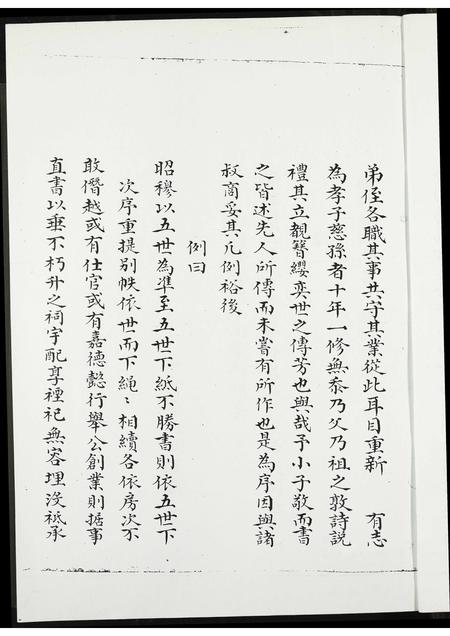 弟侄各職其事共守其業從此耳目重新　有志
為孝子慈孫者十年一修無忝乃父乃祖之敦詩説
禮其立覩簪纓奕世之傳芳也與哉予小子敬而書
之皆述先人所傳而未嘗有所作也是為序因與諸
叔商妥其凡例裕後
例曰
昭穆以五世為準至五世下紙不勝書則依五世下
次序重提別帙依世而下繩〻相續各依房次不
敢僭越或有仕官或有嘉德懿行舉公創業則据事
直書以垂不朽升之祠宇配享禋祀無容埋没祗承